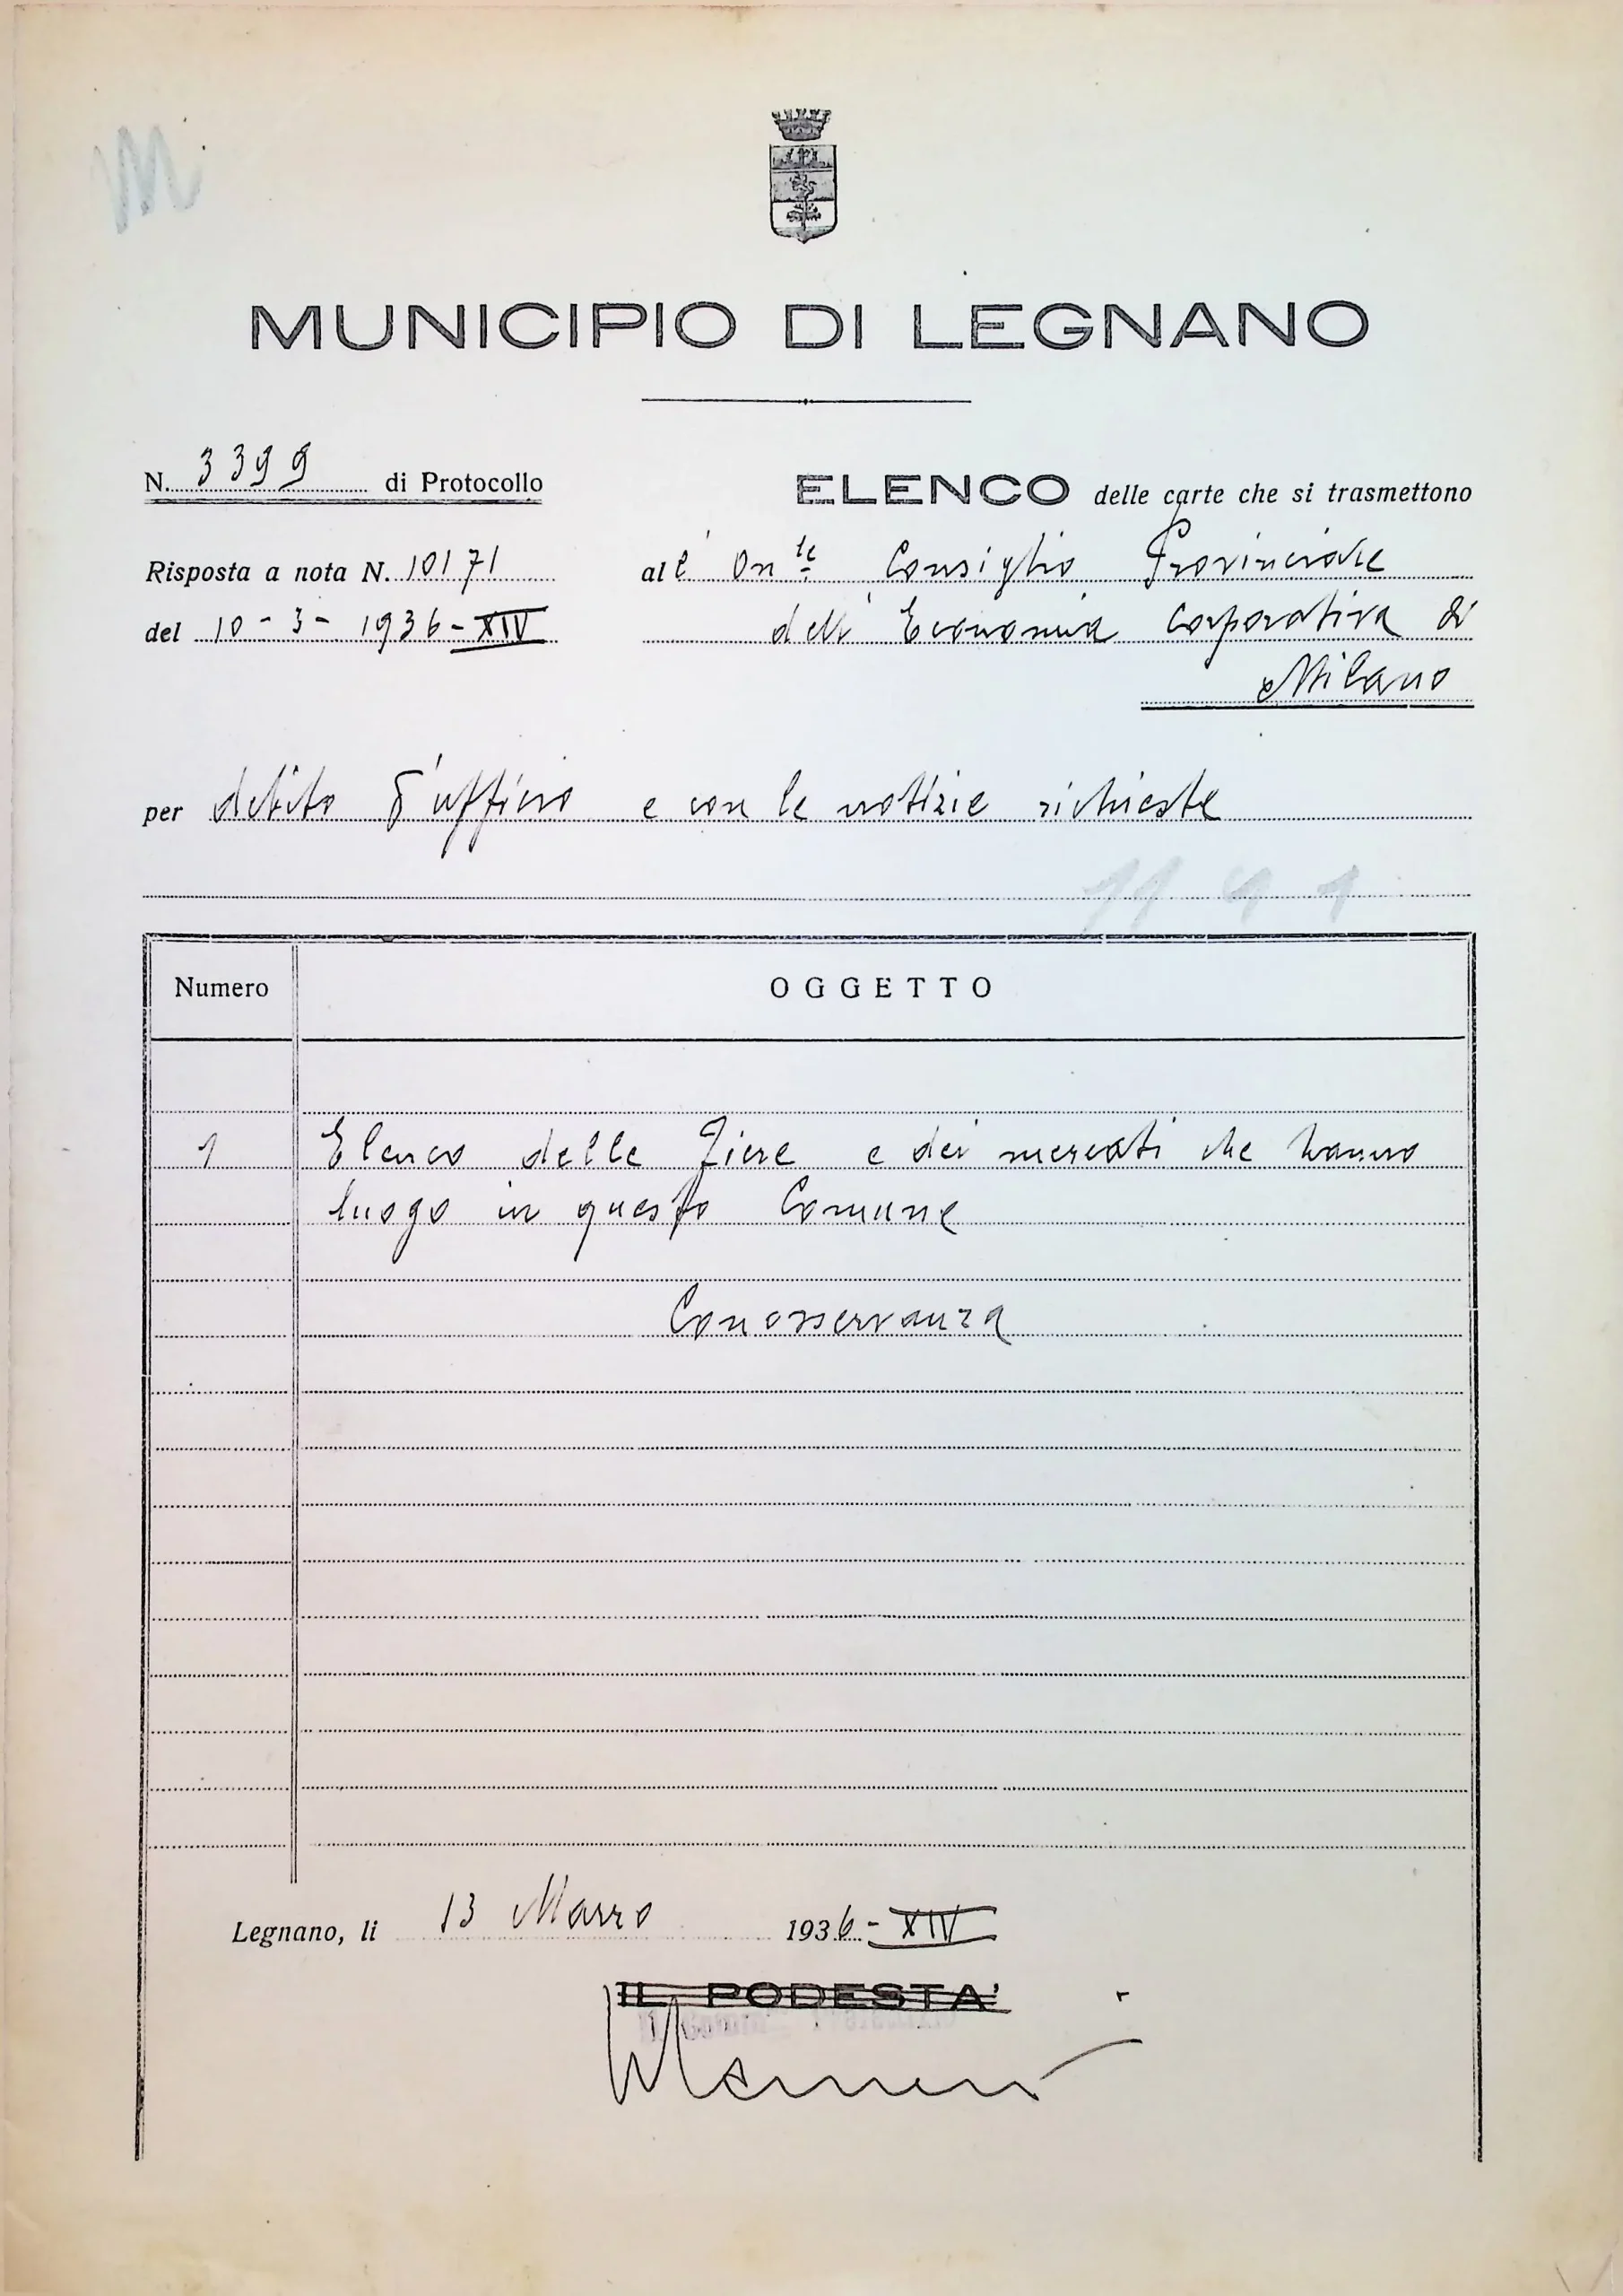 M
MUNICIPIO DI LEGNANO
N. 3399 di Protocollo
Risposta a nota N. 10171
del 10-3-1936-XIV
ELENCO delle carte che si trasmettono
all' On.le Consiglio Provinciale
dell' Economia Corporativa di
Milano
per debito d'ufficio e con le notizie richieste
Numero
OGGETTO
1 Elenco delle Fiere e dei mercati che hanno
luogo in questo Comune
Con osservanza
Legnano, li 13 Marzo 1936-XIV
IL PODESTA'